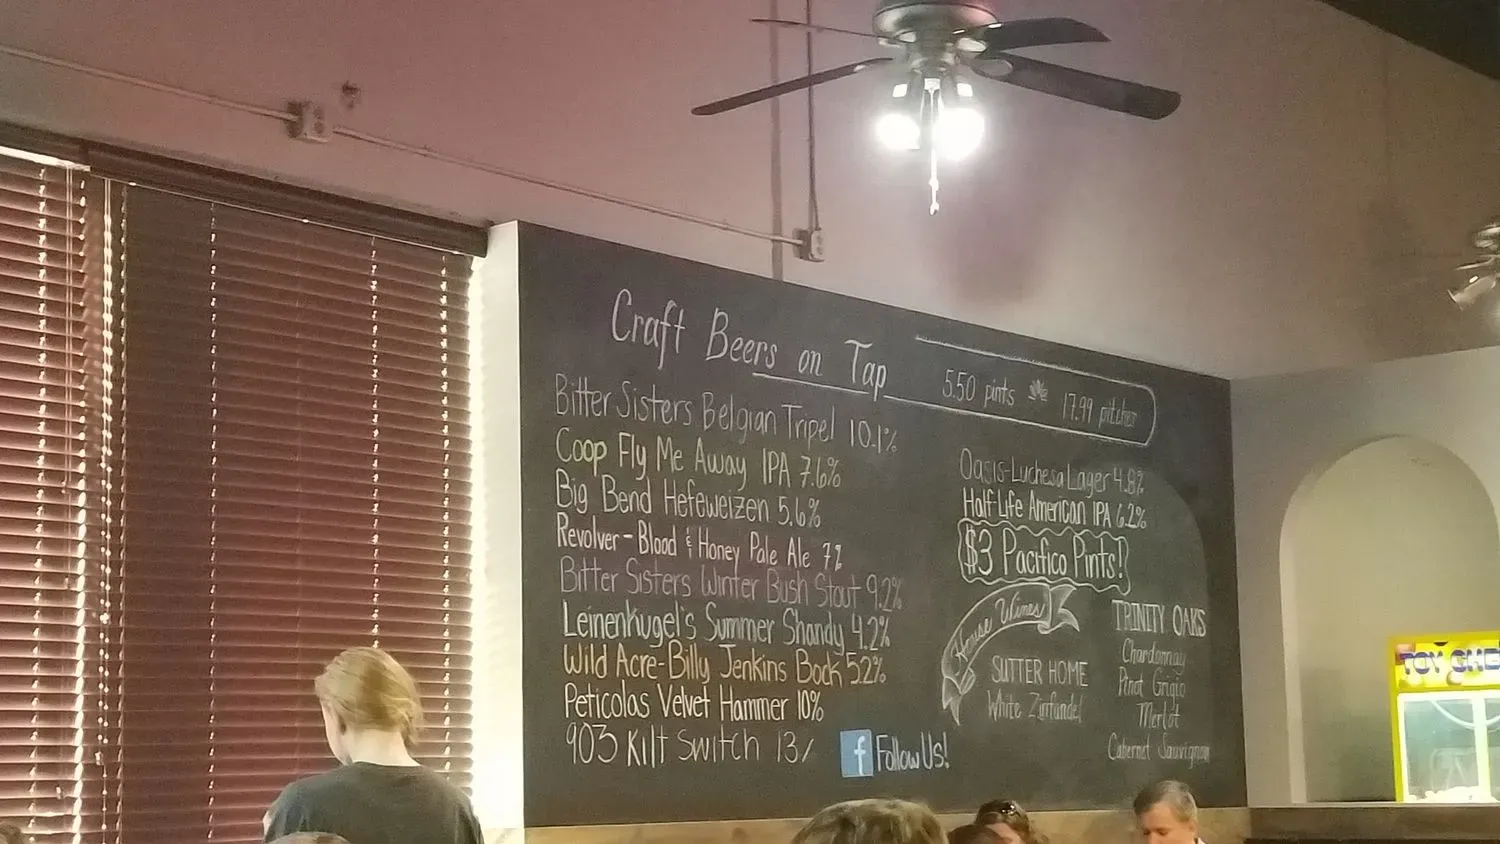 Craft Beers on Tap
5.50 pints 17.99 pitcher
Bitter Sisters Belgian Tripel 10.1%
Coop Fly Me Away IPA 7.6%
Big Bend Hefeweizen 5.6%
Revolver - Blood & Honey Pale Ale 7%
Bitter Sisters Winter Bush Stout 9.2%
Leinenkugel's Summer Shandy 4.2%
Wild Acre-Billy Jenkins Bock 5.2%
Peticolas Velvet Hammer 10%
903 Kilt Switch 13/
f Follow Us!
Oasis-Luchesa Lager 4.8%
Half Life American IPA 6.2%
$3 Pacifico Pints!
House Wines
SUTTER HOME
White Zinfandel
TRINITY OAKS
Chardonnay
Pinot Grigio
Merlot
Cabernet Sauvignon
TOY